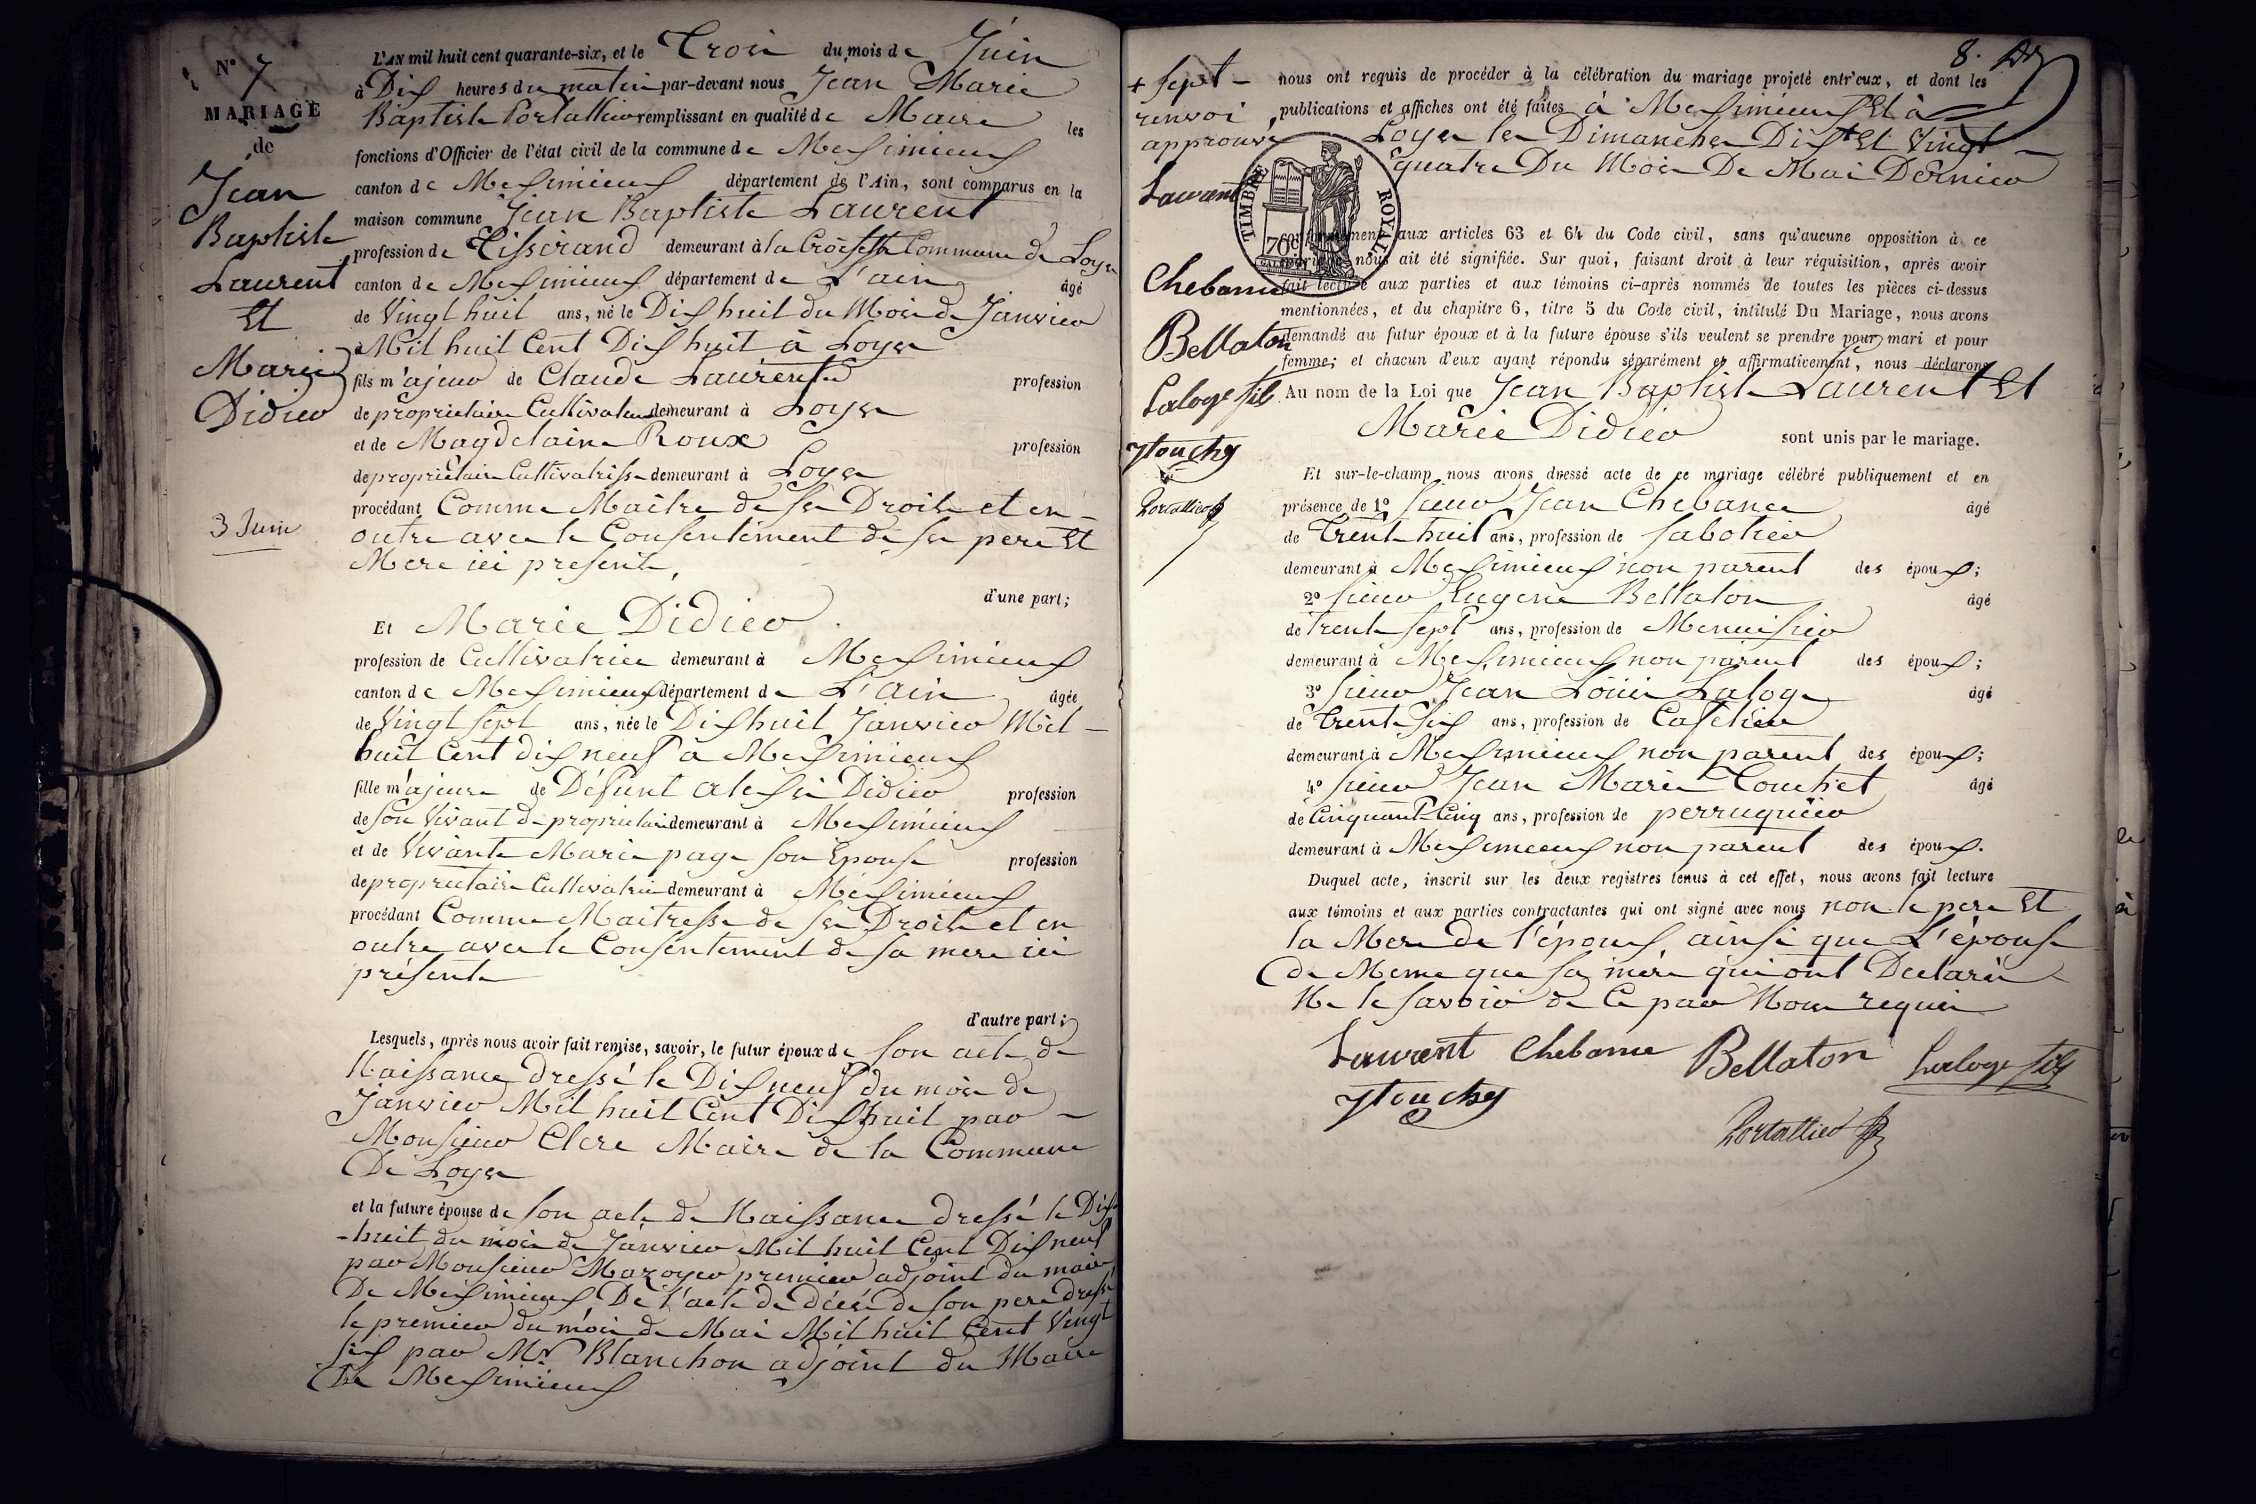 N° 7
MARIAGE
de
Jean
Baptiste
Laurent
Et
Marie
Didier
3 Juin
L'AN mil huit cent quarante-six, et le Trois du mois de Juin
à Dix heures du matin par-devant nous Jean Marie
Baptiste Portallier remplissant en qualité de Maire les
fonctions d'Officier de l'état civil de la commune de Meximieux
canton de Meximieux département de l'Ain, sont comparus en la
maison commune Jean Baptiste Laurent
profession de Tisserand demeurant à la Croisette Commune de Loyes
canton de Meximieux département de L'ain âgé
de Vingt huit ans, né le Dix huit du Mois de Janvier
Mil huit Cent Dix huit à Loyes
fils majeur de Claude Laurent profession
de proprietaire Cultivateur demeurant à Loyes
et de Magdelaine Roux profession
de propriétaire Cultivatrisse demeurant à Loyes
procédant Comme Maître de Ses Droits et en
outre avec le Consentement de Ses pere Et
Mere ici présents,
d'une part;
Et Marie Didier
profession de Cultivatrice demeurant à Meximieux
canton de Meximieux département de L'ain âgée
de Vingt Sept ans, née le Dix huit Janvier Mil
huit Cent dix neuf à Meximieux
fille majeure de Défunt alexis Didier profession
de Son Vivant de proprietaire demeurant à Meximieux
et de Vivante Marie page Son Epouse profession
de proprietaire Cultivatrice demeurant à Meximieux
procédant Comme Maitresse de Ses Droits et en
outre avec le Consentement de Sa mere ici
présente
d'autre part;
Lesquels, après nous avoir fait remise, savoir, le futur époux de Son acte de
Naissance dressé le Dix neuf du mois de
Janvier Mil huit Cent Dix huit par
Monsieur Clerc Maire de la Commune
De Loyes
et la future épouse de Son acte de Naissance dressé le Dix
huit du mois de Janvier Mil huit Cent Dix neuf
par Monsieur Mazoyer premier adjoint du maire
De Meximieux De l'acte de décès de Son pere dressé
le premier du mois de Mai Mil huit Cent Vingt
Six par Mr Blanchon adjoint du Maire
De Meximieux
8.
+ Sept
renvoi
approuvé
Laurent
Chebance
Bellaton
Laloge fils
Touchet
Portallier
nous ont requis de procéder à la célébration du mariage projeté entr'eux, et dont les
publications et affiches ont été faites à Meximieux Et à
Loyes les Dimanches Dix + Et Vingt
quatre Du Mois De Mai Dernier
TIMBRE ROYAL
70c
conformément aux articles 63 et 64 du Code civil, sans qu'aucune opposition à ce
mariage nous ait été signifiée. Sur quoi, faisant droit à leur réquisition, après avoir
fait lecture aux parties et aux témoins ci-après nommés de toutes les pièces ci-dessus
mentionnées, et du chapitre 6, titre 5 du Code civil, intitulé Du Mariage, nous avons
demandé au futur époux et à la future épouse s'ils veulent se prendre pour mari et pour
femme; et chacun d'eux ayant répondu séparément et affirmativement, nous déclarons
Au nom de la Loi que Jean Baptiste Laurent Et
Marie Didier sont unis par le mariage.
Et sur-le-champ nous avons dressé acte de ce mariage célébré publiquement et en
présence de 1° Sieur Jean Chebance âgé
de Trente huit ans, profession de Sabotier
demeurant à Meximieux non parent des époux;
2° Sieur Eugene Bellaton âgé
de Trente Sept ans, profession de Menuisier
demeurant à Meximieux non parent des époux;
3° Sieur Jean Loüis Laloge âgé
de Trente Six ans, profession de Cafetier
demeurant à Meximieux non parent des époux;
4° Sieur Jean Marie Touchet âgé
de Cinquante Cinq ans, profession de perruquier
demeurant à Meximieux non parent des époux.
Duquel acte, inscrit sur les deux registres tenus à cet effet, nous avons fait lecture
aux témoins et aux parties contractantes qui ont signé avec nous non le pere Et
la Mere de l'époux, ainsi que L'épouse
De Meme que Sa mère qui ont Declaré
Ne le Savoir de Ce par Nous requis
Laurent Chebance Bellaton Laloge fils
Touchet
Portallier